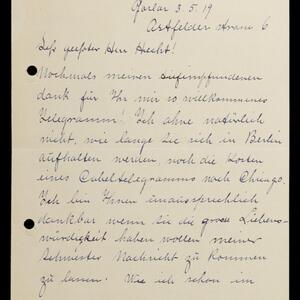 Goslar 3.5.19
Astfelder strasse 6
Sehr geehrter Herr Hecht!
Nochmals meinen tiefempfundenen
dank für Ihr mir so willkommenes
Telegramm! Ich ahne natürlich
nicht, wie lange Sie sich in Berlin
aufhalten werden, noch die Kosten
eines Cabeltelegramms nach Chicago.
Ich bin Ihnen unaussprechlich
dankbar wenn Sie die grosse Liebens-
würdigkeit haben wollen meiner
Schwester Nachricht zu kommen
zu lassen. Wie ich schon im